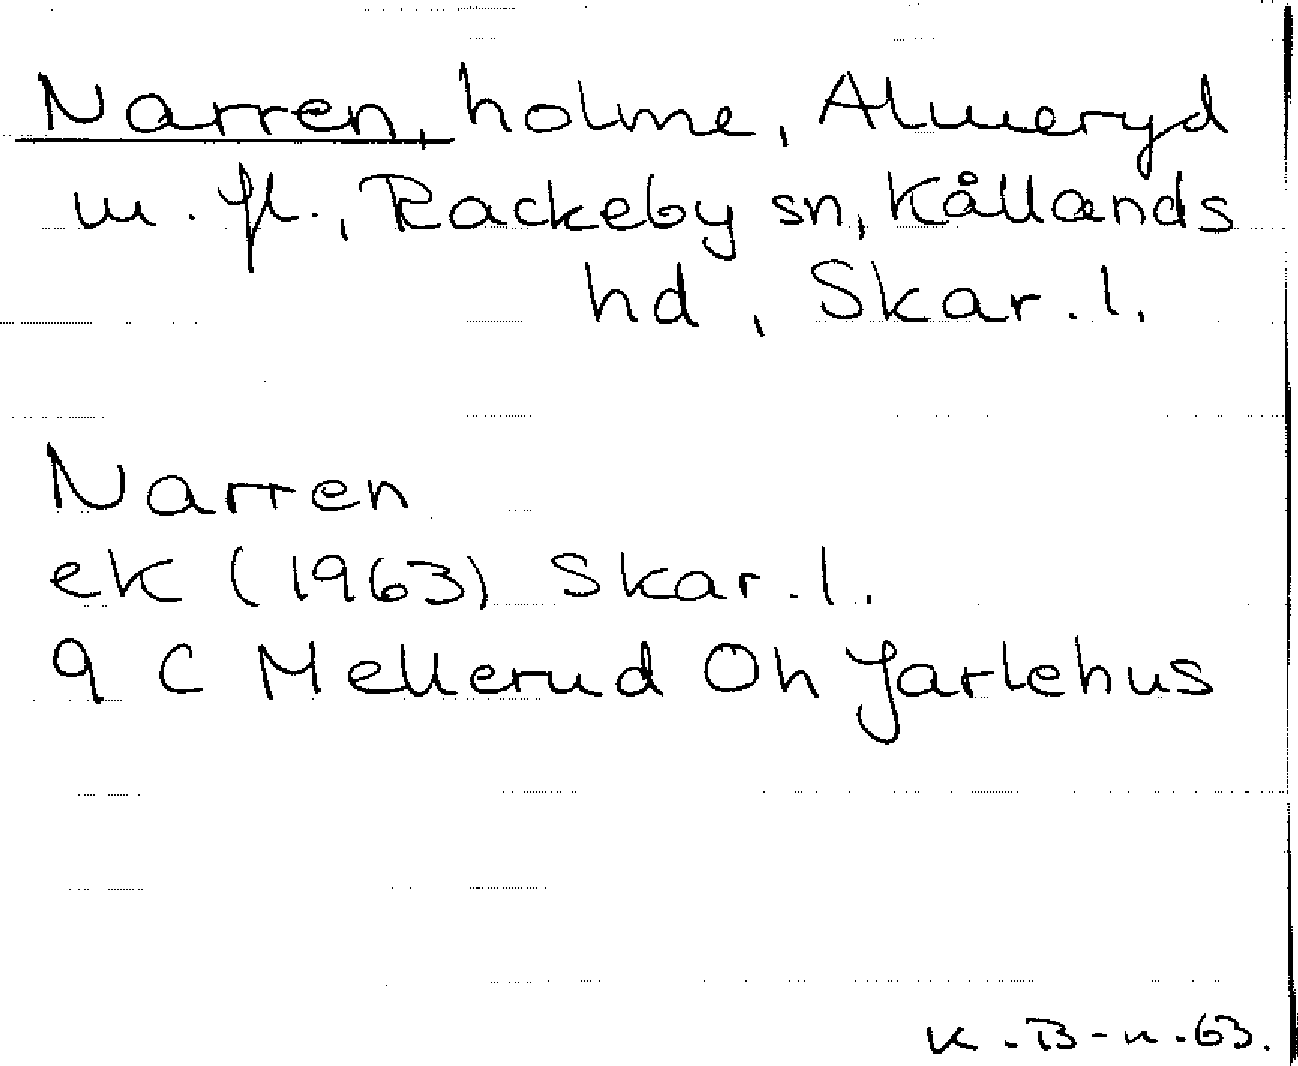 Narren, holme, Almeryd
m. fl., Rackeby sn, Kållands
hd, Skar. l.
Narren
ek (1963) Skar. l.
9 C Mellerud Oh Jarlehus
K. B-n. 63.